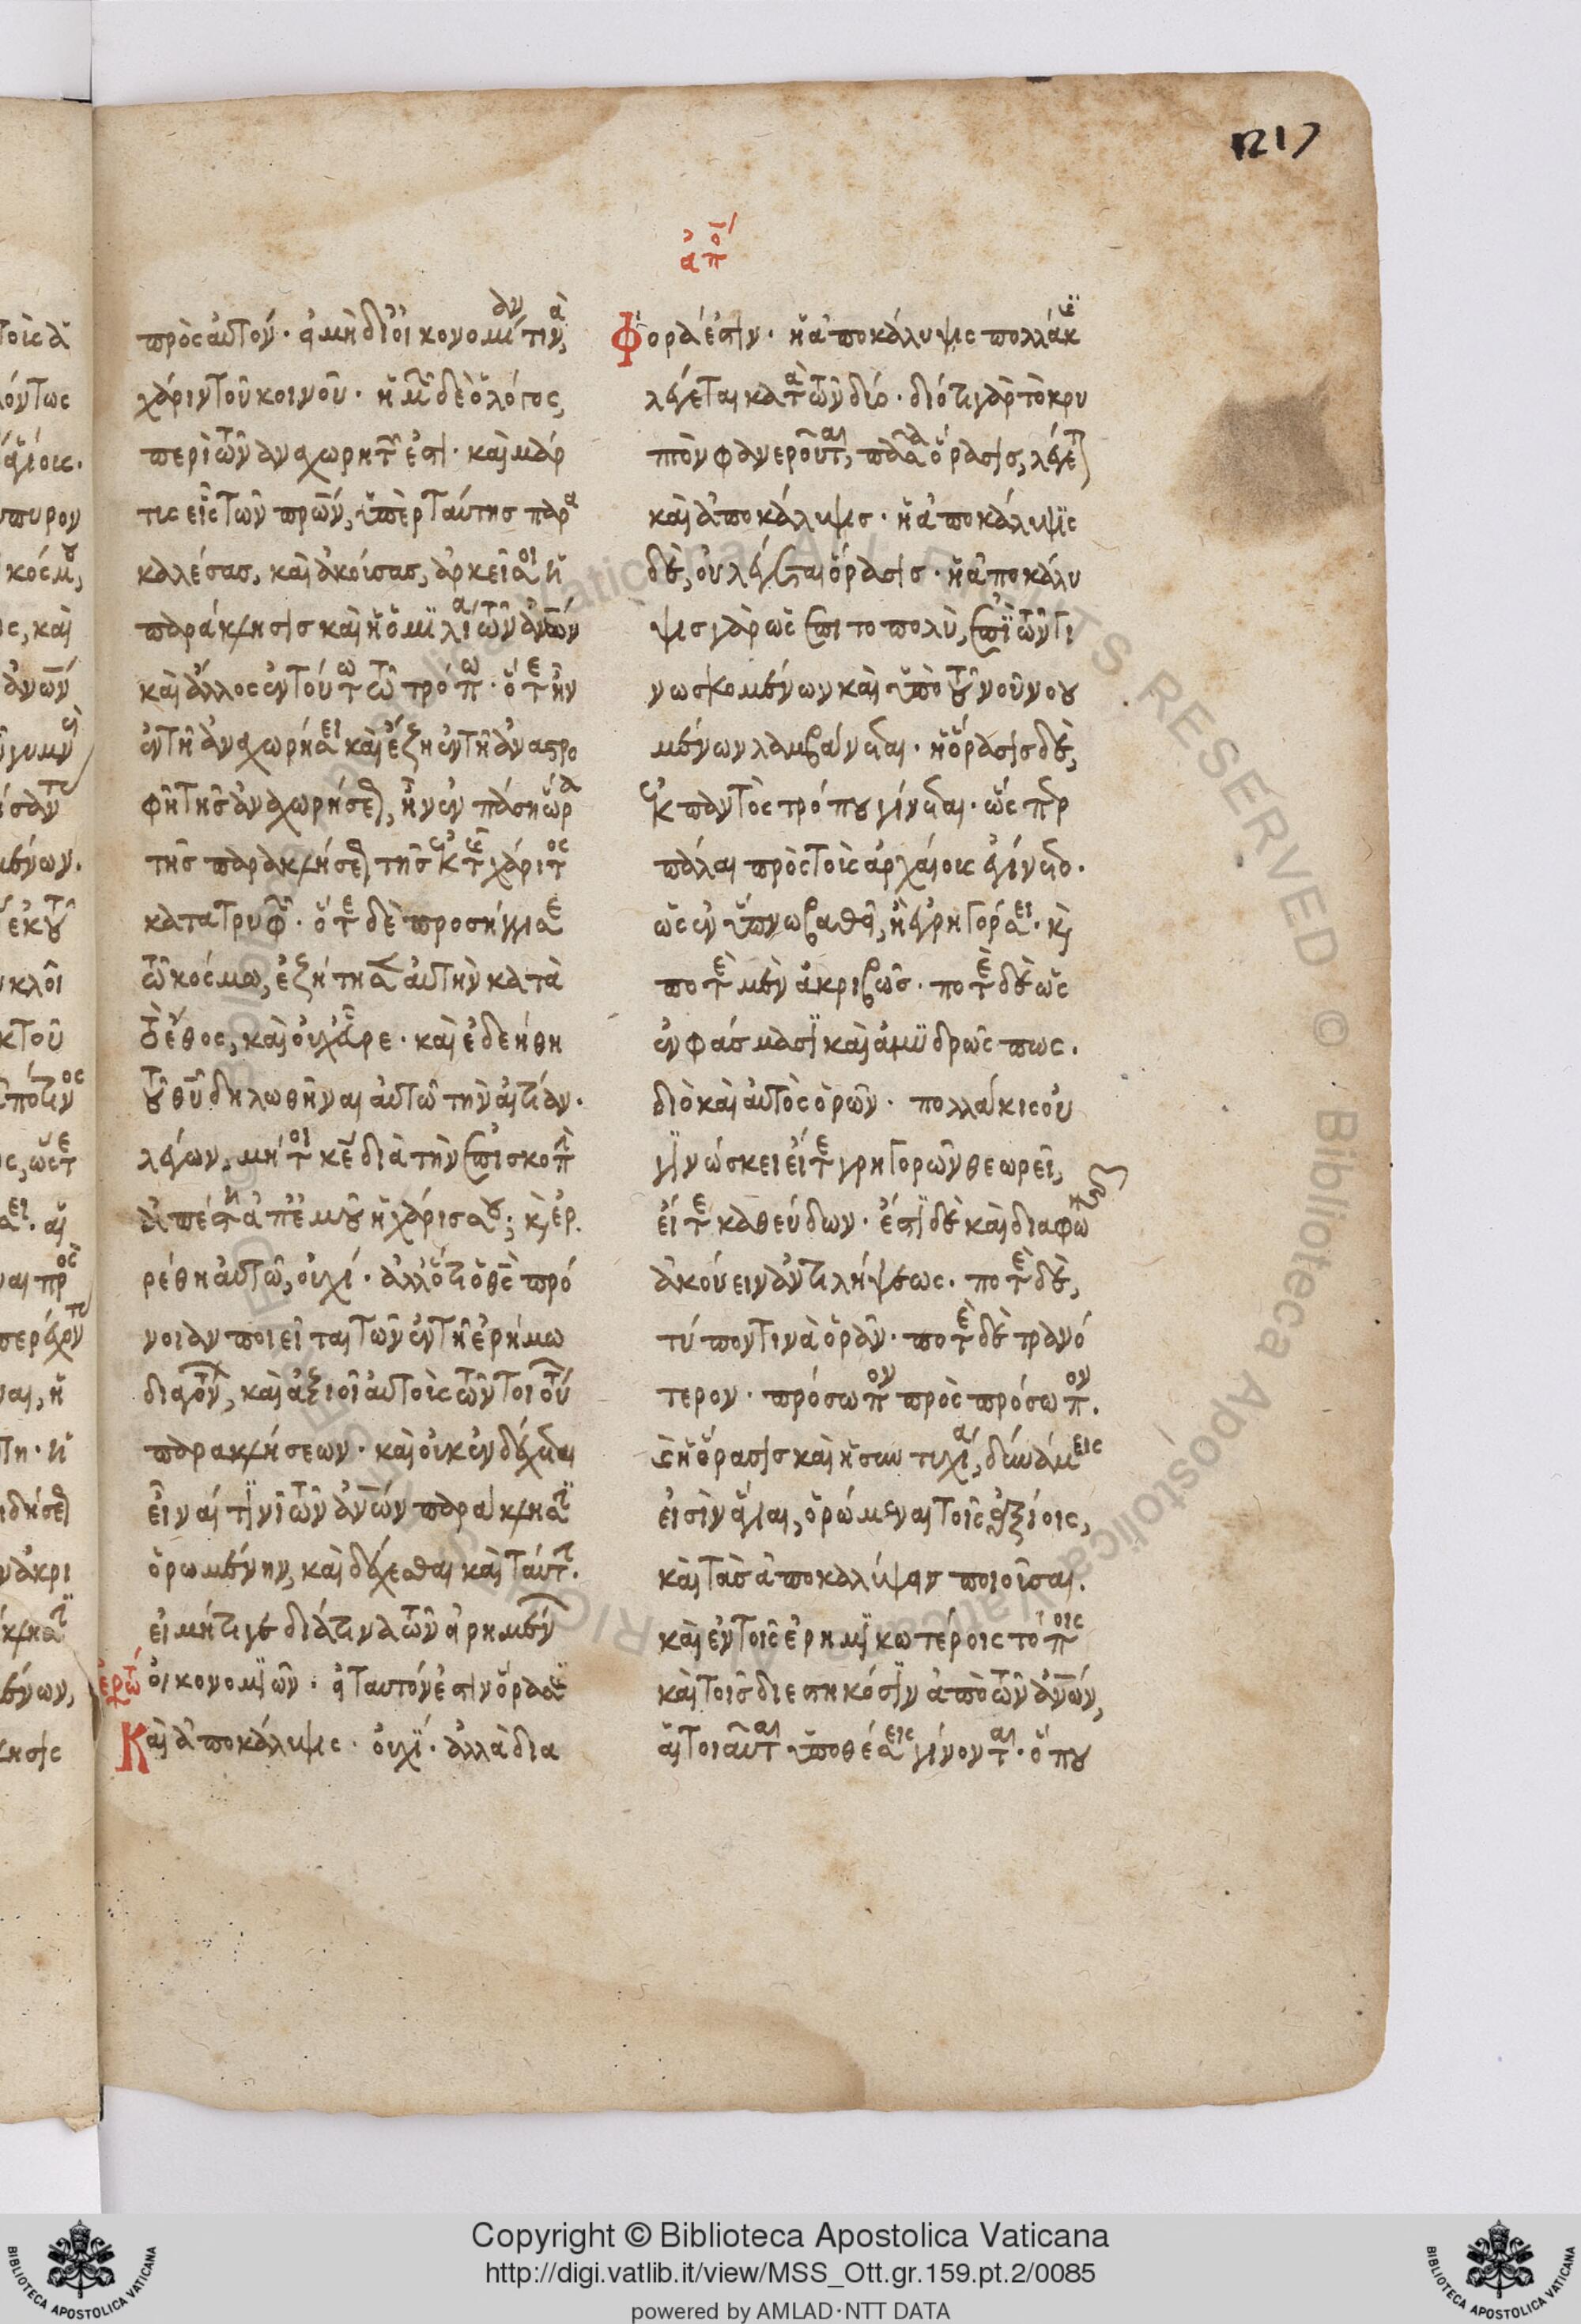 217
ἀπο
πρὸς αὐτόν. εἰ μὴ δι' οἰκονομίαν τινὰ,
χάριν τοῦ κοινοῦ. ἡμῖν δὲ ὁ λόγος,
περὶ τῶν ἀναχωρητῶν ἐστι. καὶ μάρ
τις εἷς τῶν πρων, ὑπὲρ ταύτης παρα
καλέσας, καὶ ἀκούσας, ἀρκεῖσοι ἡ
παράκλησις καὶ ἡ ὁμιλία τῶν ἀνων
καὶ ἄλλος ἐν τούτω τῶ τρόπω. ὅτε ἦν
ἐν τῆ ἀναχωρήσει καὶ ἔζη ἐν τῆ ἀναστρο
φῆ τῆς ἀναχωρήσεως, ἦν ἐν πάση ὥρα
τῆς παρακλήσεως τῆς ἐκ τῆς χάριτος
κατατρυφῶν. ὅτε δὲ προσήγγισε
τῶ κόσμω, ἐζήτησεν αὐτὴν κατὰ
τὸ ἔθος, καὶ οὐχ εὗρε. καὶ ἐδεήθη
τοῦ θυ δηλωθῆναι αὐτῶ τὴν αἰτίαν.
λέγων, μήτοι κε διὰ τὴν ἐπισκοπὴν
ἀπέστη ἀπ' ἐμοῦ ἡ χάρις σου; κ ἐρ
ρέθη αὐτῶ, οὐχί. ἀλλ' ὅτι ὁ θς πρό
νοιαν ποιεῖται τῶν ἐν τῆ ἐρήμω
διαγόντων, καὶ ἀξιοῖ αὐτοὺς τῶν τοιούτων
παρακλήσεων. καὶ οὐκ ἐνδέχεται
εἶναί τινι τῶν ἀνων παράκλησιν
ὁρωμένην, καὶ δέχεσθαι καὶ ταύτην.
εἰ μήτιγε διά τινα τῶν εἰρημένων
ἐρώ οἰκονομιῶν. εἰ ταυτόν ἐστιν ὅρασις
Καὶ ἀποκάλυψις. οὐχί. ἀλλὰ δια
Φορά ἐστιν. ἡ ἀποκάλυψις πολλάκις
λέγεται κατὰ τῶν δύο. διότι γὰρ τὸ κρυ
πτὸν φανεροῦται, πᾶσα ὅρασις, λέγεται
καὶ ἀποκάλυψις. ἡ ἀποκάλυψις
δὲ, οὐ λέγεται ὅρασις. ἡ ἀποκάλυ
ψις γὰρ ὡς ἐπὶ το πολὺ, ἐπὶ τῶν γι
νωσκομένων καὶ ὑπὸ τοῦ νοῦ νοου
μένων λαμβάνεται. ἡ ὅρασις δὲ,
ἐκ παντὸς τρόπου γίνεται. ὥσπερ
πάλαι πρὸς τοὺς ἀρχαίους ἐγίνετο.
ὡς ἐν ὕπνω βαθεῖ, ἢ ἐγρηγόρσει. κ
ποτὲ μὲν ἀκριβῶς. ποτὲ δὲ ὡς
ἐν φάσμασι καὶ ἀμυδρῶς πως.
διὸ καὶ αὐτὸς ὁ ὁρῶν. πολλάκις οὐ
γινώσκει εἴτε γρηγορῶν θεωρεῖ,
εἴτε καθεύδων. ἔστι δὲ καὶ διαφω
ἀκούειν ἀντιλήψεως. ποτὲ δὲ,
τύπον τινὰ ὁρᾶν. ποτὲ δὲ τρανό
τερον. πρόσωπον πρὸς πρόσωπον.
κ ἡ ὅρασις καὶ ἡ συντυχία, δυνάμεις
εἰσὶν ἅγιαι, ὁρώμεναι τοῖς ἀξίοις,
καὶ τὰς ἀποκαλύψεις ποιοῦσαι.
καὶ ἐν τοῖς ἐρημικωτέροις τόποις
καὶ τοῖς διεστηκόσιν ἀπὸ τῶν ἀνων,
αἱ τοιαῦται ὑποθέσεις γίνονται. ὅπου
Copyright © Biblioteca Apostolica Vaticana
http://digi.vatlib.it/view/MSS_Ott.gr.159.pt.2/0085
powered by AMLAD·NTT DATA